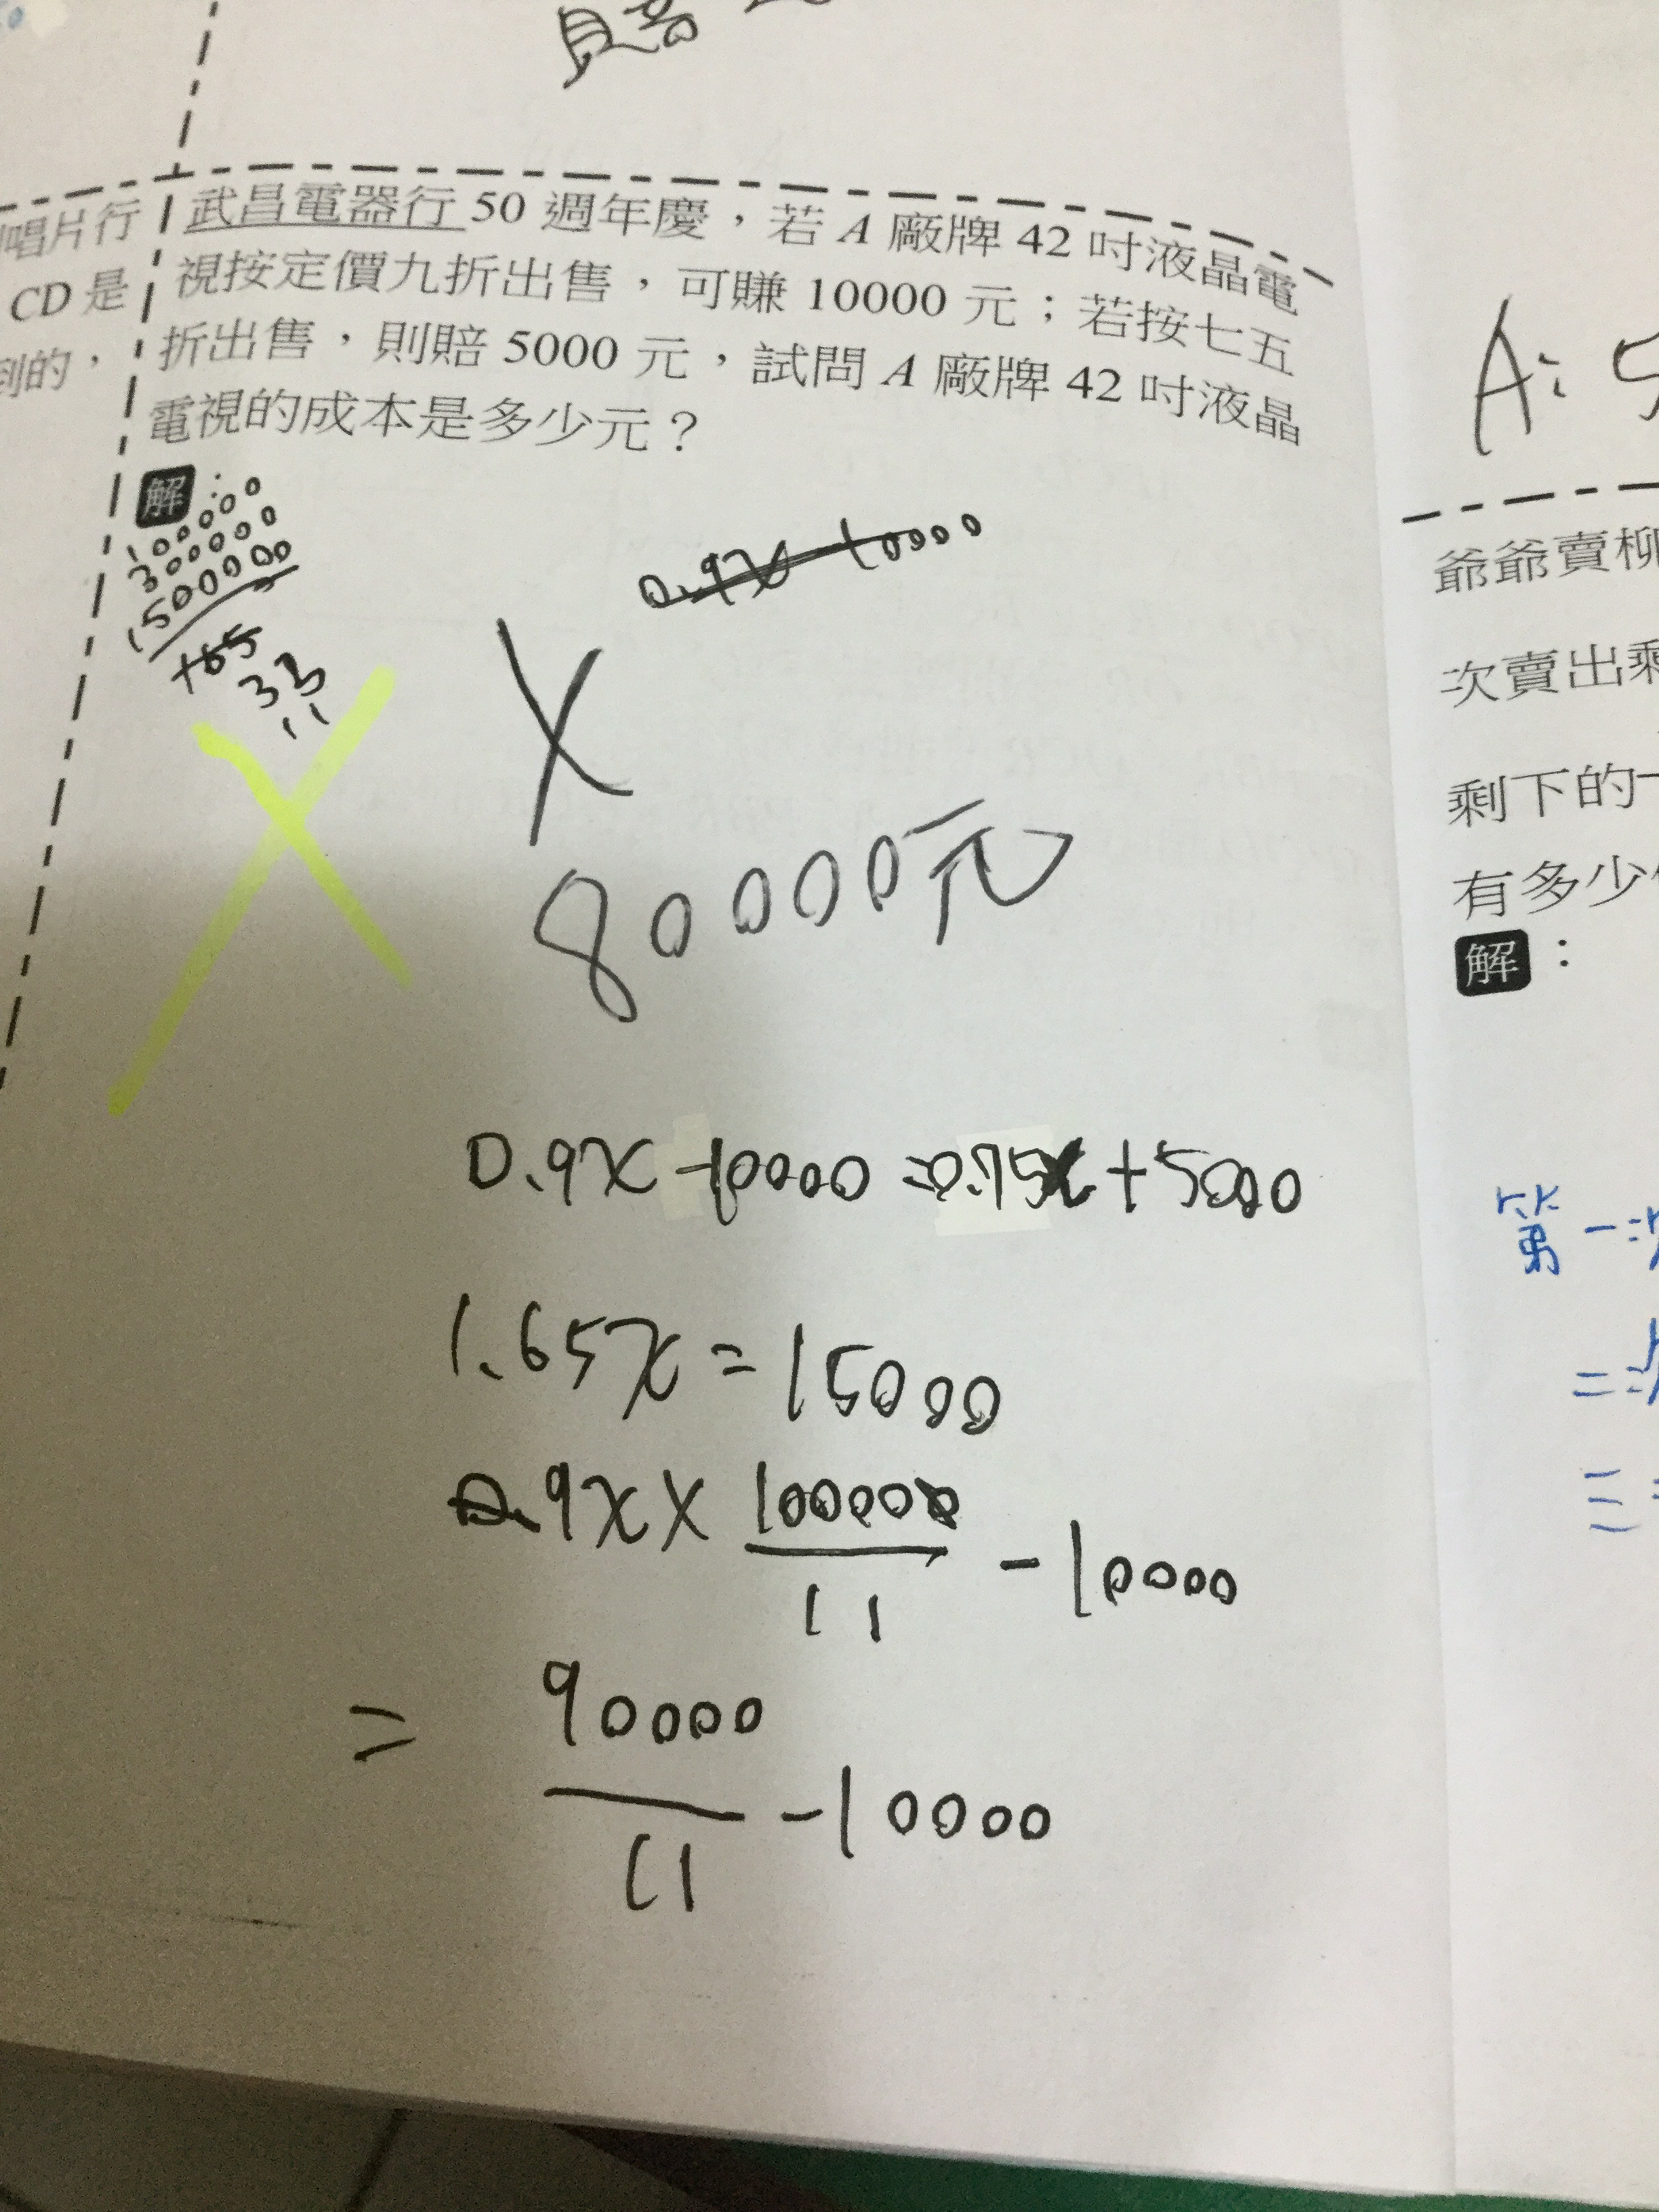 唱片行
CD 是
到的，
武昌電器行 50 週年慶，若 A 廠牌 42 吋液晶電
視按定價九折出售，可賺 10000 元；若按七五
折出售，則賠 5000 元，試問 A 廠牌 42 吋液晶
電視的成本是多少元？
解：
100000
300000
1500000
165
33
11
0.9x-10000
X
80000元
0.9x-10000=0.75x+5000
1.65x=15000
0.9x×100000/11-10000
=90000/11-10000
A:5
爺爺賣柳
次賣出剩
剩下的一
有多少
解：
第一次
=
=